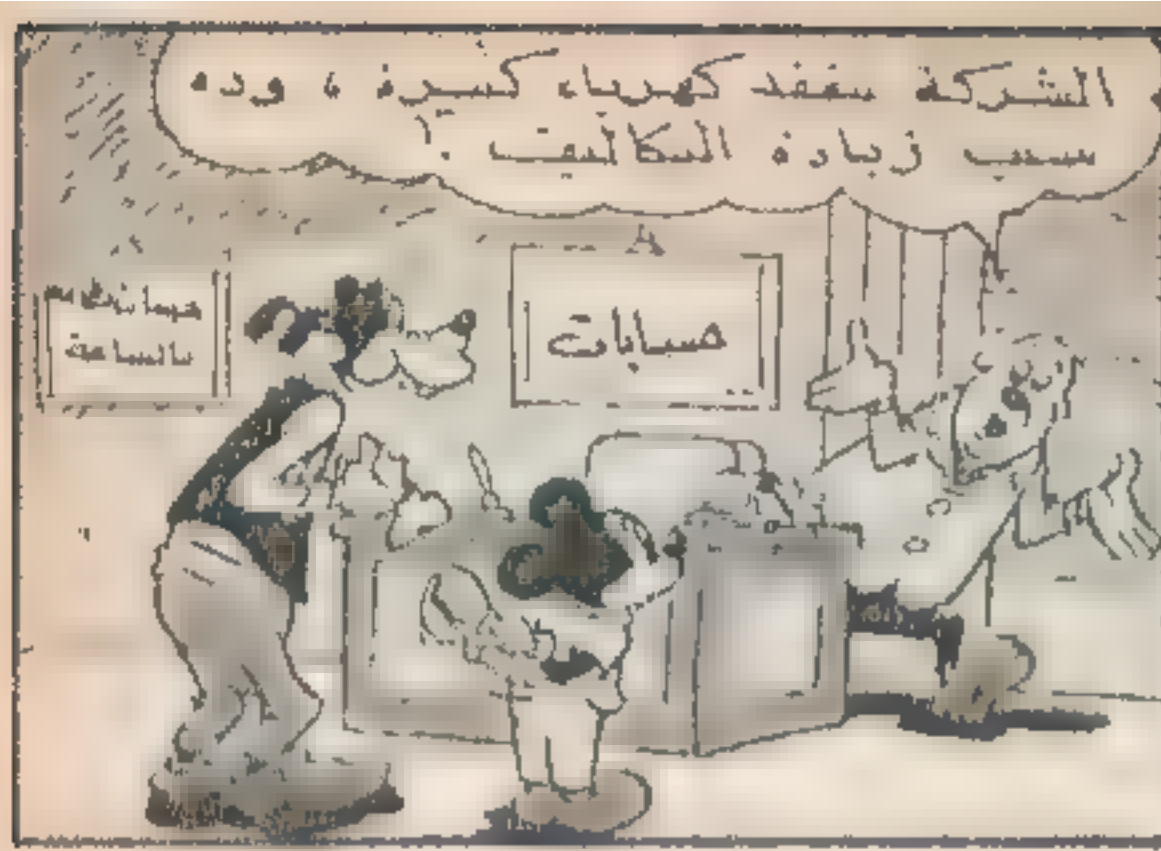 الشركة بتفقد كهرباء كتيرة ، وده
سبب زيادة التكاليف .!
حسابات
بالساعة